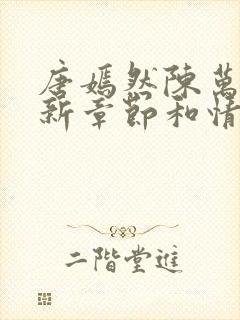 唐嫣然陳萬
新章節和情
二階堂進